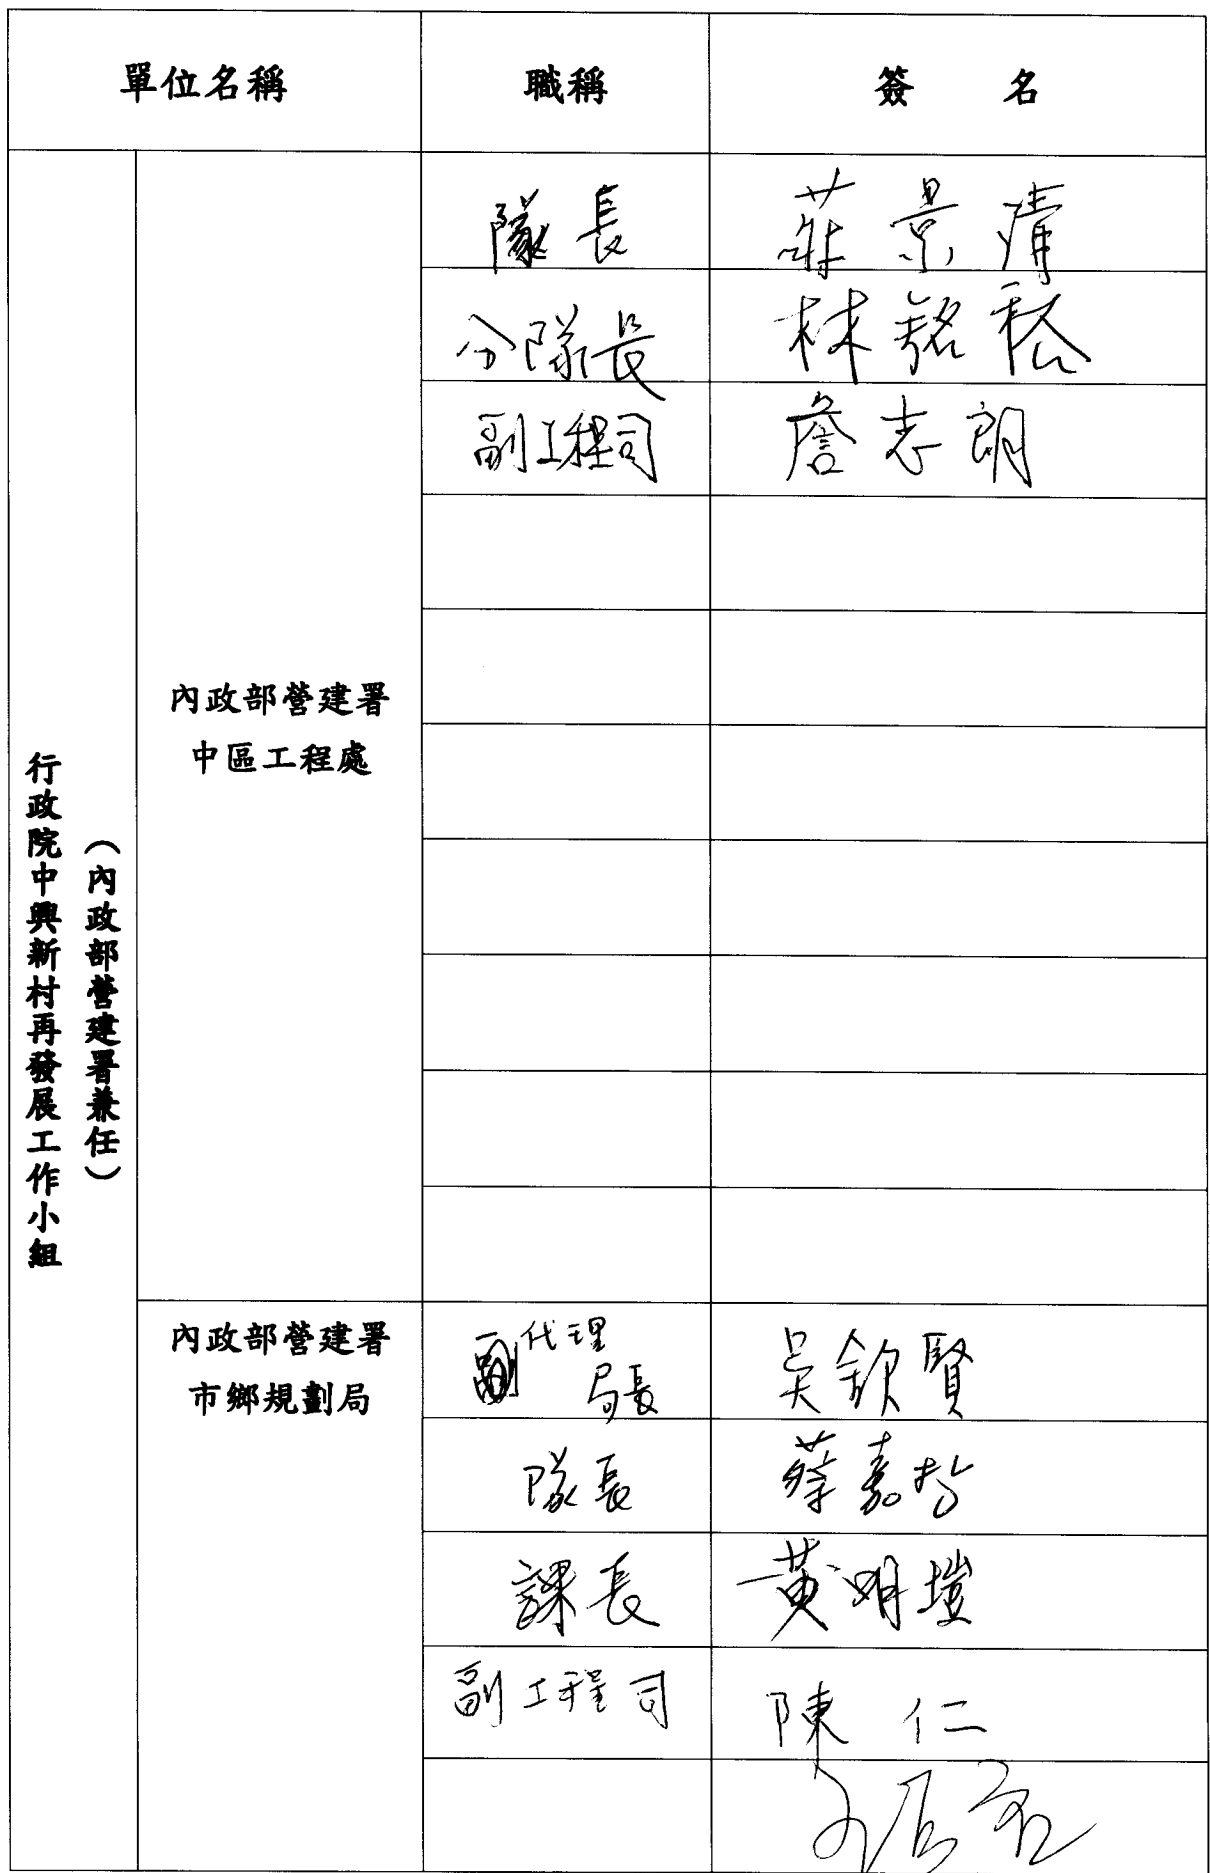 單位名稱 職稱 簽 名
行政院中興新村再發展工作小組
（內政部營建署兼任）
內政部營建署
中區工程處
隊長 莊景清
分隊長 林銘秘
副工程司 詹志朗
內政部營建署
市鄉規劃局
副代理
局長 吳欽賢
隊長 蔡嘉
課長 黃明塏
副工程司 陳 仁